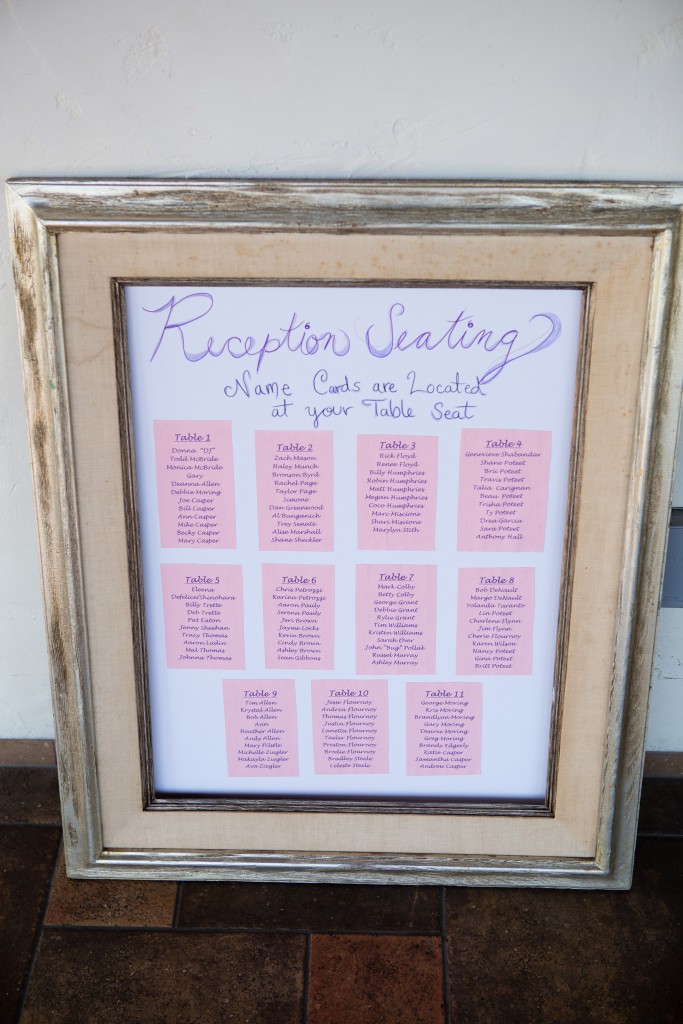 Reception Seating
Name Cards are Located
at your Table Seat
Table 1
Donna "DJ"
Todd McBride
Monica McBride
Gary
Deanna Allen
Debbie Moring
Joe Casper
Bill Casper
Ann Casper
Mike Casper
Becky Casper
Mary Casper
Table 2
Zach Mason
Haley Munch
Bronson Byrd
Rachel Page
Taylor Page
Simone
Dan Greenwood
Al Bunganich
Trey Senate
Alise Marshall
Shane Sheckler
Table 3
Rick Floyd
Renee Floyd
Billy Humphries
Robin Humphries
Matt Humphries
Megan Humphries
Coco Humphries
Marc Miscione
Shari Miscione
Marylyn Stith
Table 4
Genevieve Shabandar
Shane Poteet
Brii Poteet
Travis Poteet
Talia Carignan
Beau Poteet
Trisha Poteet
Ty Poteet
Drea Garcia
Sara Poteet
Anthony Hall
Table 5
Eleana
Defelice/Shinohara
Billy Trette
Deb Trette
Pat Eaton
Jenny Sheehan
Tracy Thomas
Aaron Ludin
Mal Thomas
Johnna Thomas
Table 6
Chris Petrozzi
Karina Petrozzi
Aaron Pauly
Serena Pauly
Jeri Brown
Jayme Locks
Kevin Brown
Cindy Brown
Ashley Brown
Sean Gibbons
Table 7
Mark Colby
Betty Colby
George Grant
Debbie Grant
Rylie Grant
Tim Williams
Kristen Williams
Sarah Over
John "Bug" Pollak
Russel Murray
Ashley Murray
Table 8
Bob DeNault
Margo DeNault
Yolanda Taranto
Lin Poteet
Charlene Flynn
Jim Flynn
Cherie Flournoy
Karen Wilson
Nancy Poteet
Gina Poteet
Britt Poteet
Table 9
Tim Allen
Krystal Allen
Bob Allen
Ann
Heather Allen
Andy Allen
Mary Pilelle
Michelle Ziegler
Makayla Ziegler
Ava Ziegler
Table 10
Jesse Flournoy
Andrea Flournoy
Thomas Flournoy
Justin Flournoy
Lanetta Flournoy
Taeler Flournoy
Preston Flournoy
Brodie Flournoy
Bradley Steele
Celeste Steele
Table 11
George Moring
Kris Moring
Brandlynn Moring
Gary Moring
Desiree Moring
Greg Moring
Brandy Edgerly
Katie Casper
Samantha Casper
Andrew Casper